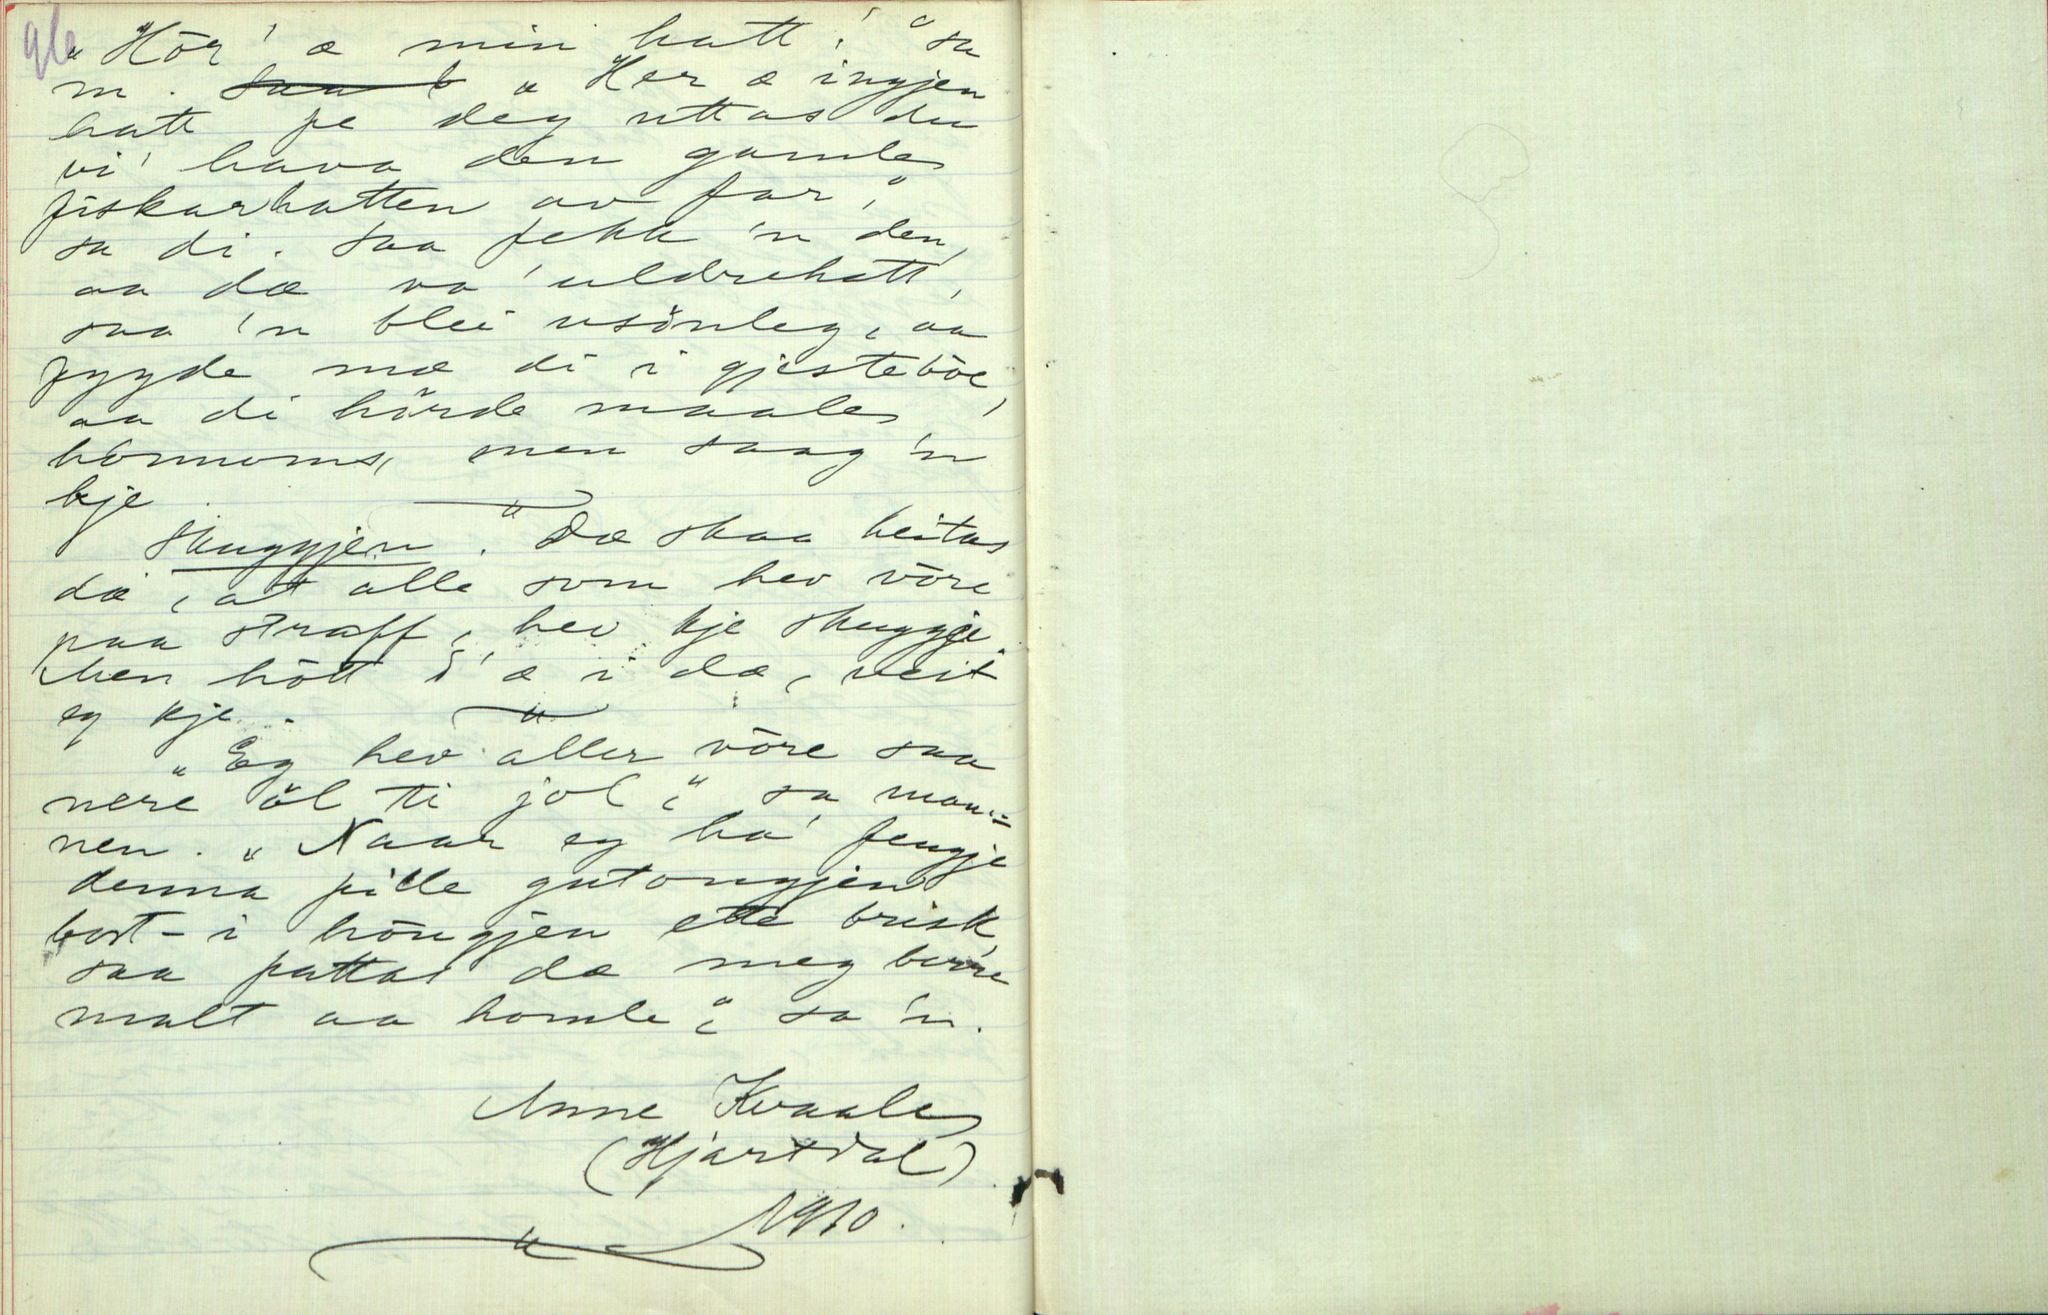 96
„Hör' æ min hatt!“ sa
'n. „Her æ ingjen
hatt pe deg uttas du
vi' hava den gamle
fiskarhatten av far,“
sa di. Saa fekk 'n den,
aa dæ va' uldrehatt,
saa 'n blei usönleg, aa
fygde mæ di i gjesteböe,
aa di hörde maale
honnoms, men saag 'n
kje.
Skuggjen. Dæ skaa heitas
dæ, at alle som hev vöre
paa straff, hev kje skuggje.
Men hött d'æ i dæ, veit
eg kje.
„Eg hev aller vöre saa
nere öl ti jol“, sa man-
nen. „Naar eg ha' fengje
denna pitle gutongjen
bort i höngjen ette brisk,
saa vattas dæ meg berre
malt aa homle“, sa 'n.
Anne Kvaale
(Hjartdal)
1910.